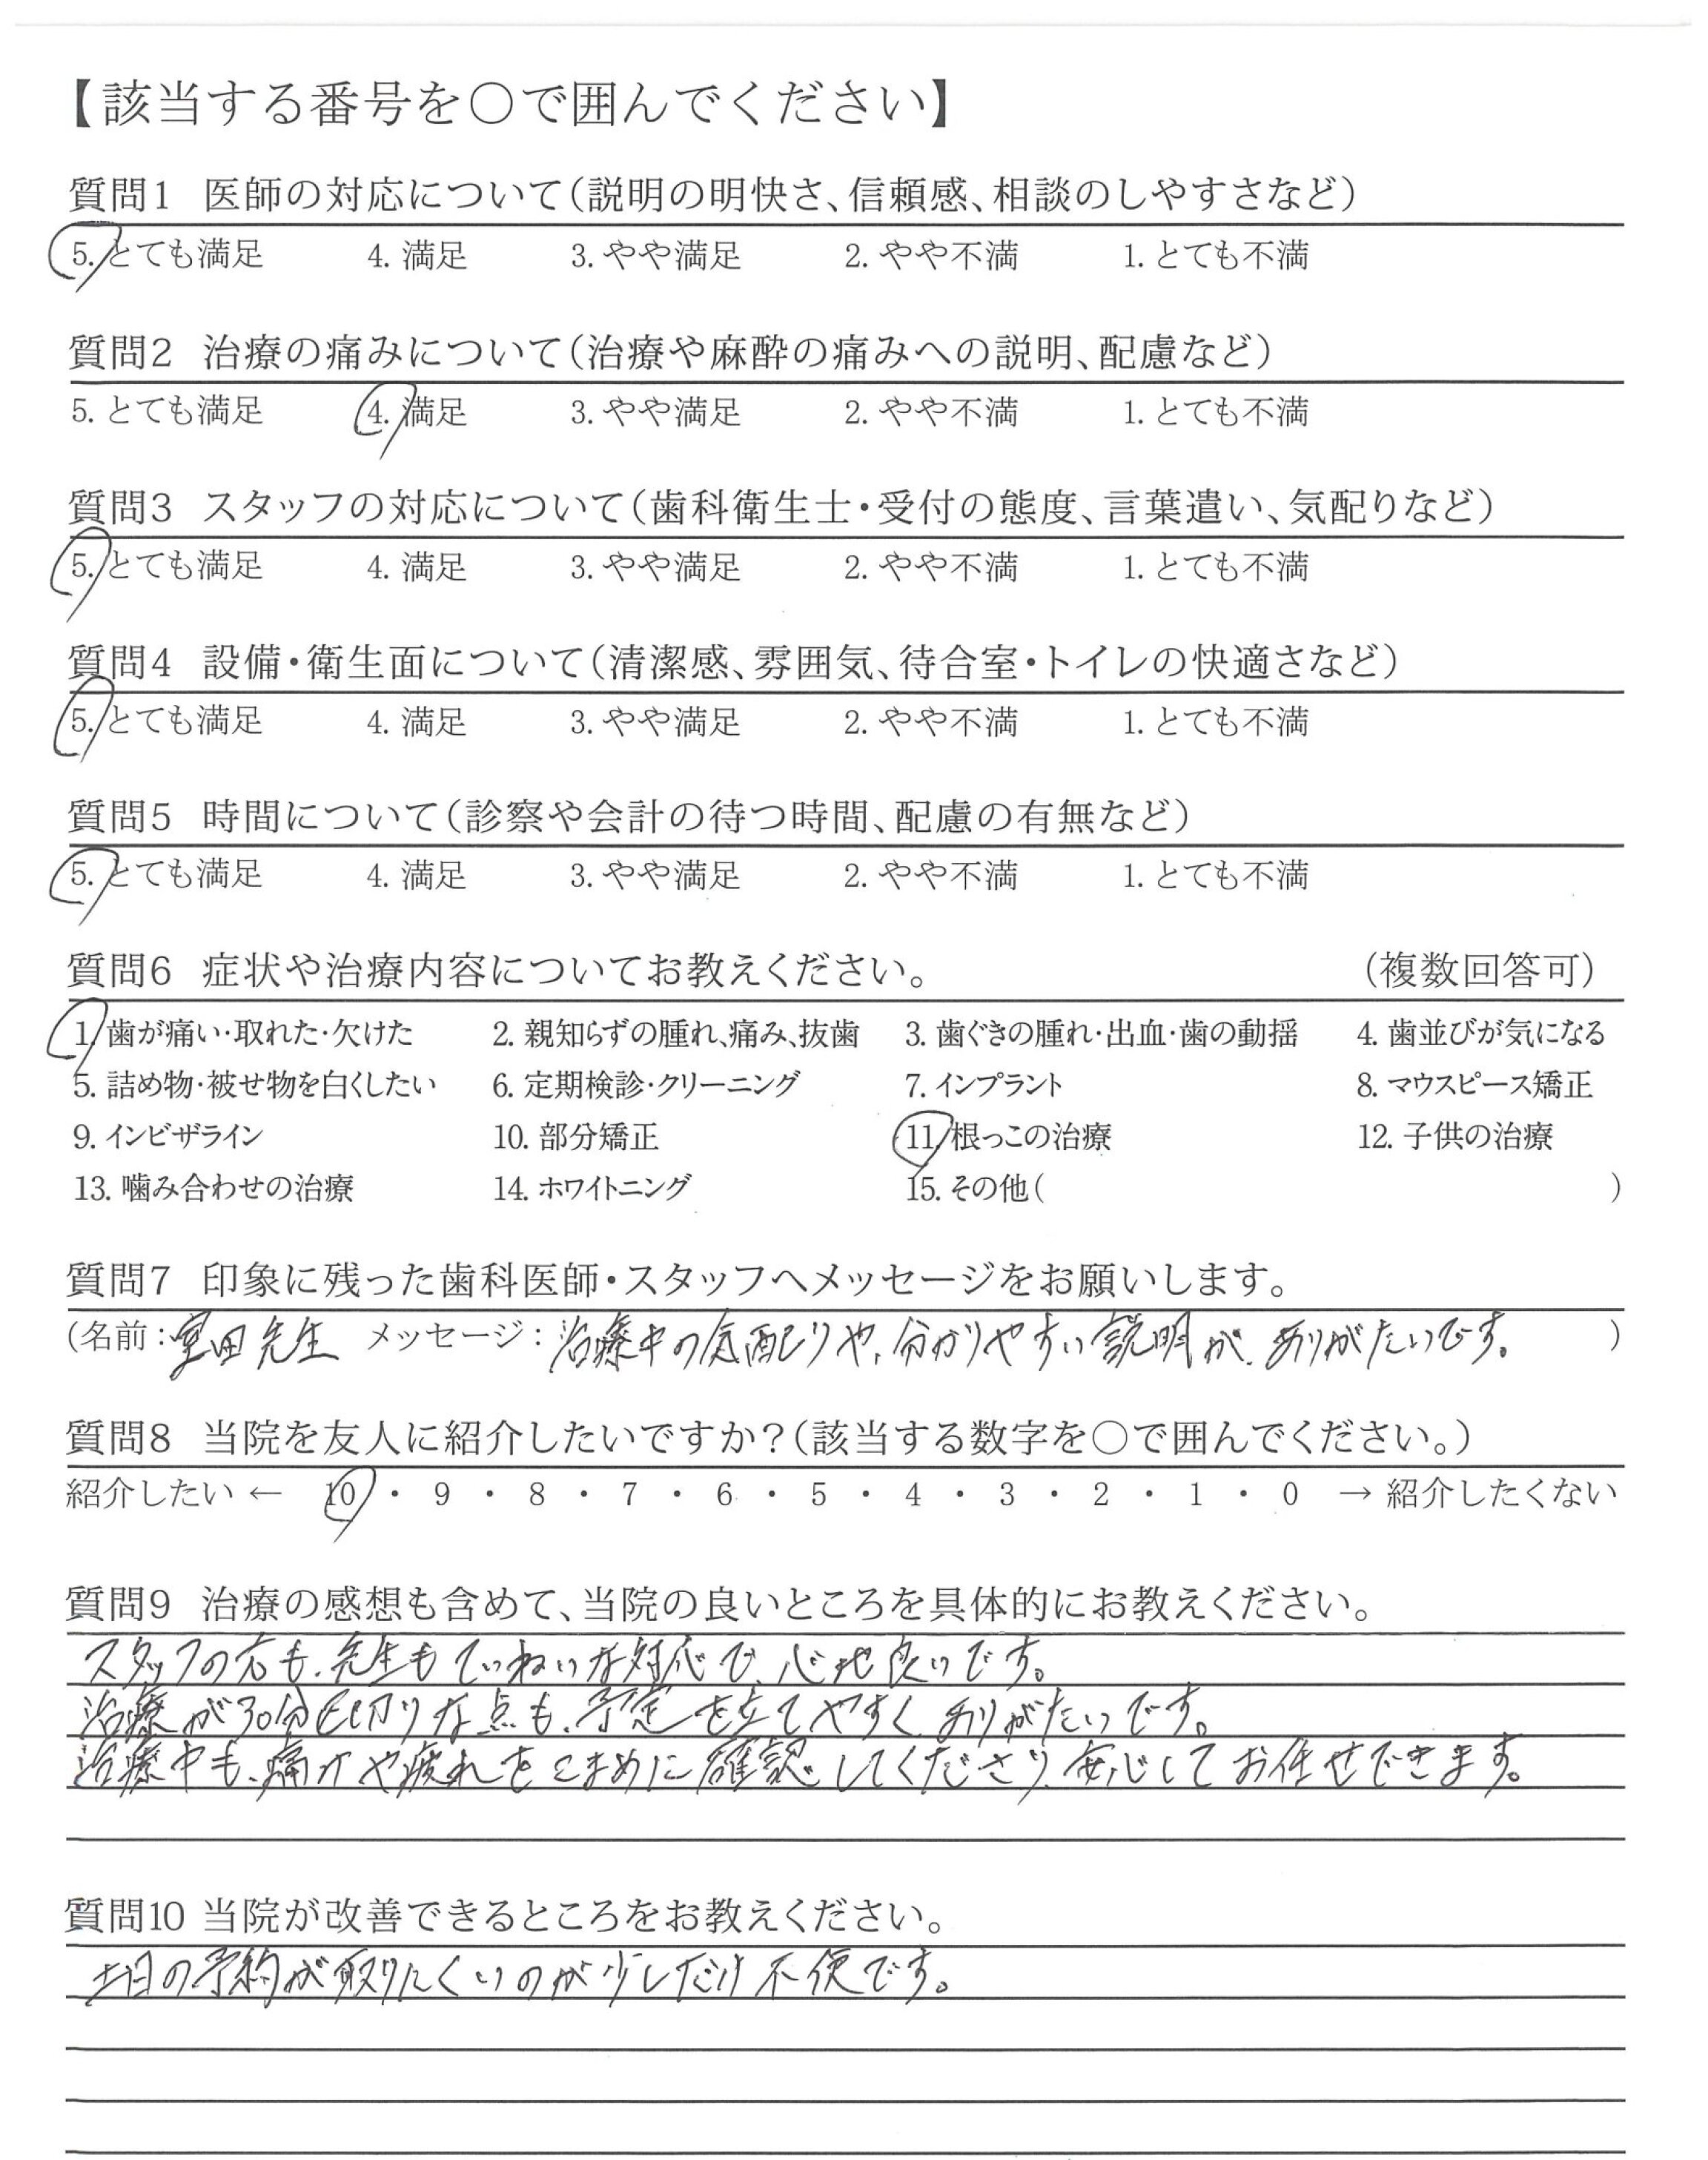 【該当する番号を○で囲んでください】
質問1 医師の対応について(説明の明快さ、信頼感、相談のしやすさなど)
5. とても満足 4. 満足 3. やや満足 2. やや不満 1. とても不満
質問2 治療の痛みについて(治療や麻酔の痛みへの説明、配慮など)
5. とても満足 4. 満足 3. やや満足 2. やや不満 1. とても不満
質問3 スタッフの対応について(歯科衛生士・受付の態度、言葉遣い、気配りなど)
5. とても満足 4. 満足 3. やや満足 2. やや不満 1. とても不満
質問4 設備・衛生面について(清潔感、雰囲気、待合室・トイレの快適さなど)
5. とても満足 4. 満足 3. やや満足 2. やや不満 1. とても不満
質問5 時間について(診察や会計の待つ時間、配慮の有無など)
5. とても満足 4. 満足 3. やや満足 2. やや不満 1. とても不満
質問6 症状や治療内容についてお教えください。 (複数回答可)
1. 歯が痛い・取れた・欠けた 2. 親知らずの腫れ、痛み、抜歯 3. 歯ぐきの腫れ・出血・歯の動揺 4. 歯並びが気になる
5. 詰め物・被せ物を白くしたい 6. 定期検診・クリーニング 7. インプラント 8. マウスピース矯正
9. インビザライン 10. 部分矯正 11. 根っこの治療 12. 子供の治療
13. 噛み合わせの治療 14. ホワイトニング 15. その他( )
質問7 印象に残った歯科医師・スタッフへメッセージをお願いします。
(名前: 田先生 メッセージ: 治療中の気配りや、分かりやすい説明が、ありがたいです。 )
質問8 当院を友人に紹介したいですか?(該当する数字を○で囲んでください。)
紹介したい ← 10 ・ 9 ・ 8 ・ 7 ・ 6 ・ 5 ・ 4 ・ 3 ・ 2 ・ 1 ・ 0 → 紹介したくない
質問9 治療の感想も含めて、当院の良いところを具体的にお教えください。
スタッフの方も、先生もていねいな対応で、心地良いです。
治療が30分区切りな点も、予定を立てやすく、ありがたいです。
治療中も、痛みや疲れをこまめに確認してくださり、安心してお任せできます。
質問10 当院が改善できるところをお教えください。
土日の予約が取りにくいのが少しだけ不便です。